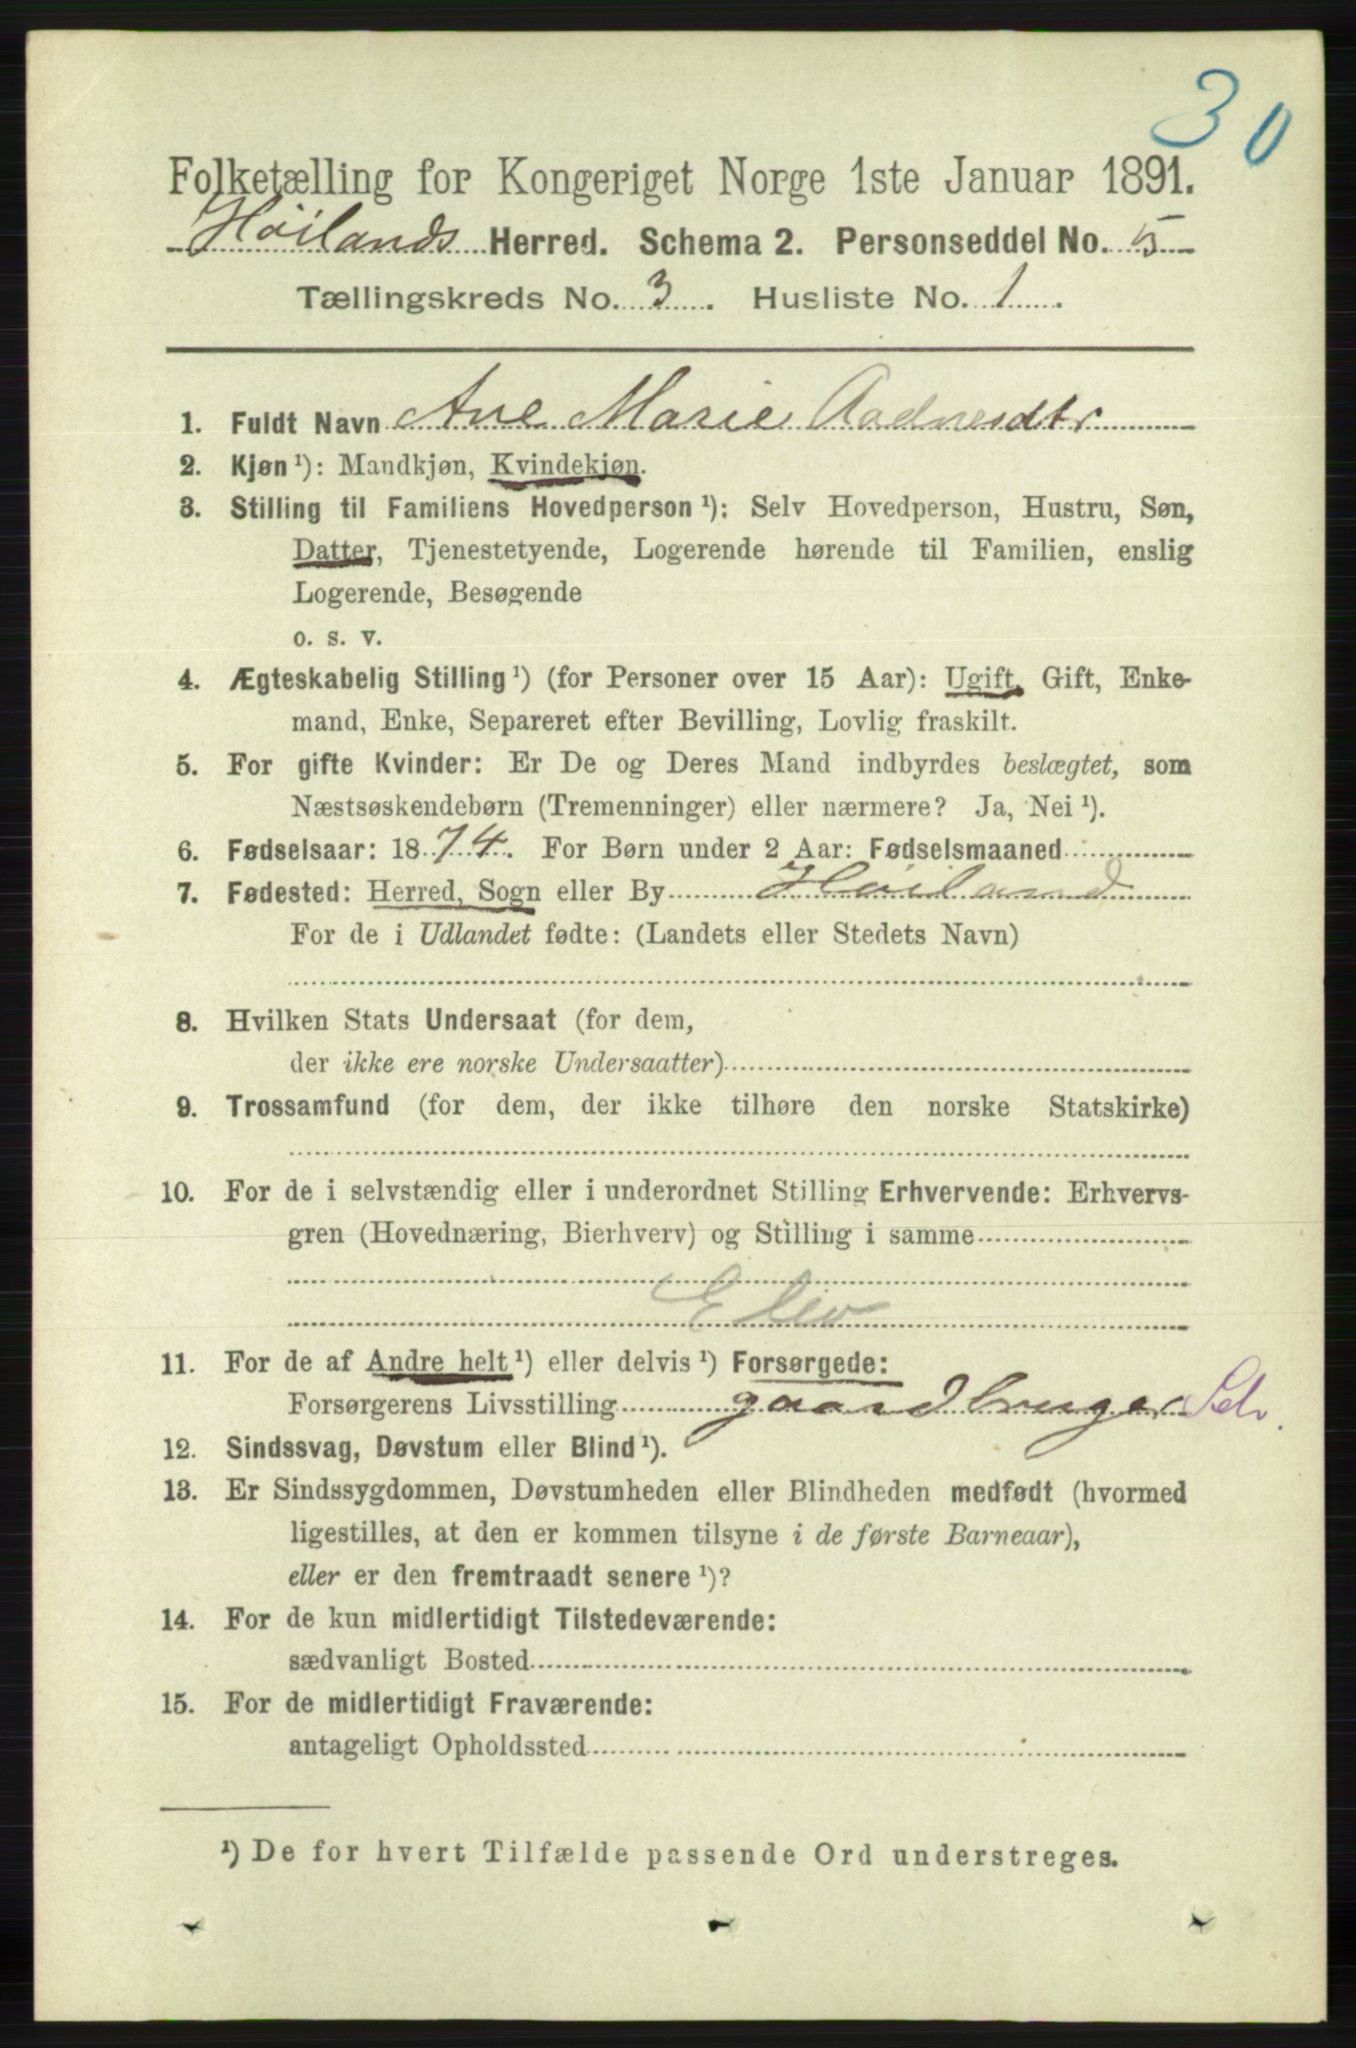 30
Folketælling for Kongeriget Norge 1ste Januar 1891.
Høilands Herred. Schema 2. Personseddel No. 5
Tællingskreds No. 3. Husliste No. 1.
1. Fuldt Navn Ane Marie Aadnesdtr
2. Kjøn ¹): Mandkjøn, Kvindekjøn.
3. Stilling til Familiens Hovedperson ¹): Selv Hovedperson, Hustru, Søn,
Datter, Tjenestetyende, Logerende hørende til Familien, enslig
Logerende, Besøgende
o. s. v.
4. Ægteskabelig Stilling ¹) (for Personer over 15 Aar): Ugift, Gift, Enke-
mand, Enke, Separeret efter Bevilling, Lovlig fraskilt.
5. For gifte Kvinder: Er De og Deres Mand indbyrdes beslægtet, som
Næstsøskendebørn (Tremenninger) eller nærmere? Ja, Nei ¹).
6. Fødselsaar: 1874. For Børn under 2 Aar: Fødselsmaaned
7. Fødested: Herred, Sogn eller By Høiland
For de i Udlandet fødte: (Landets eller Stedets Navn)
8. Hvilken Stats Undersaat (for dem,
der ikke ere norske Undersaatter)
9. Trossamfund (for dem, der ikke tilhøre den norske Statskirke)
10. For de i selvstændig eller i underordnet Stilling Erhvervende: Erhvervs-
gren (Hovednæring, Bierhverv) og Stilling i samme
Elev
11. For de af Andre helt ¹) eller delvis ¹) Forsørgede:
Forsørgerens Livsstilling gaardbruger Selv.
12. Sindssvag, Døvstum eller Blind ¹).
13. Er Sindssygdommen, Døvstumheden eller Blindheden medfødt (hvormed
ligestilles, at den er kommen tilsyne i de første Barneaar),
eller er den fremtraadt senere ¹)?
14. For de kun midlertidigt Tilstedeværende:
sædvanligt Bosted
15. For de midlertidigt Fraværende:
antageligt Opholdssted
¹) De for hvert Tilfælde passende Ord understreges.